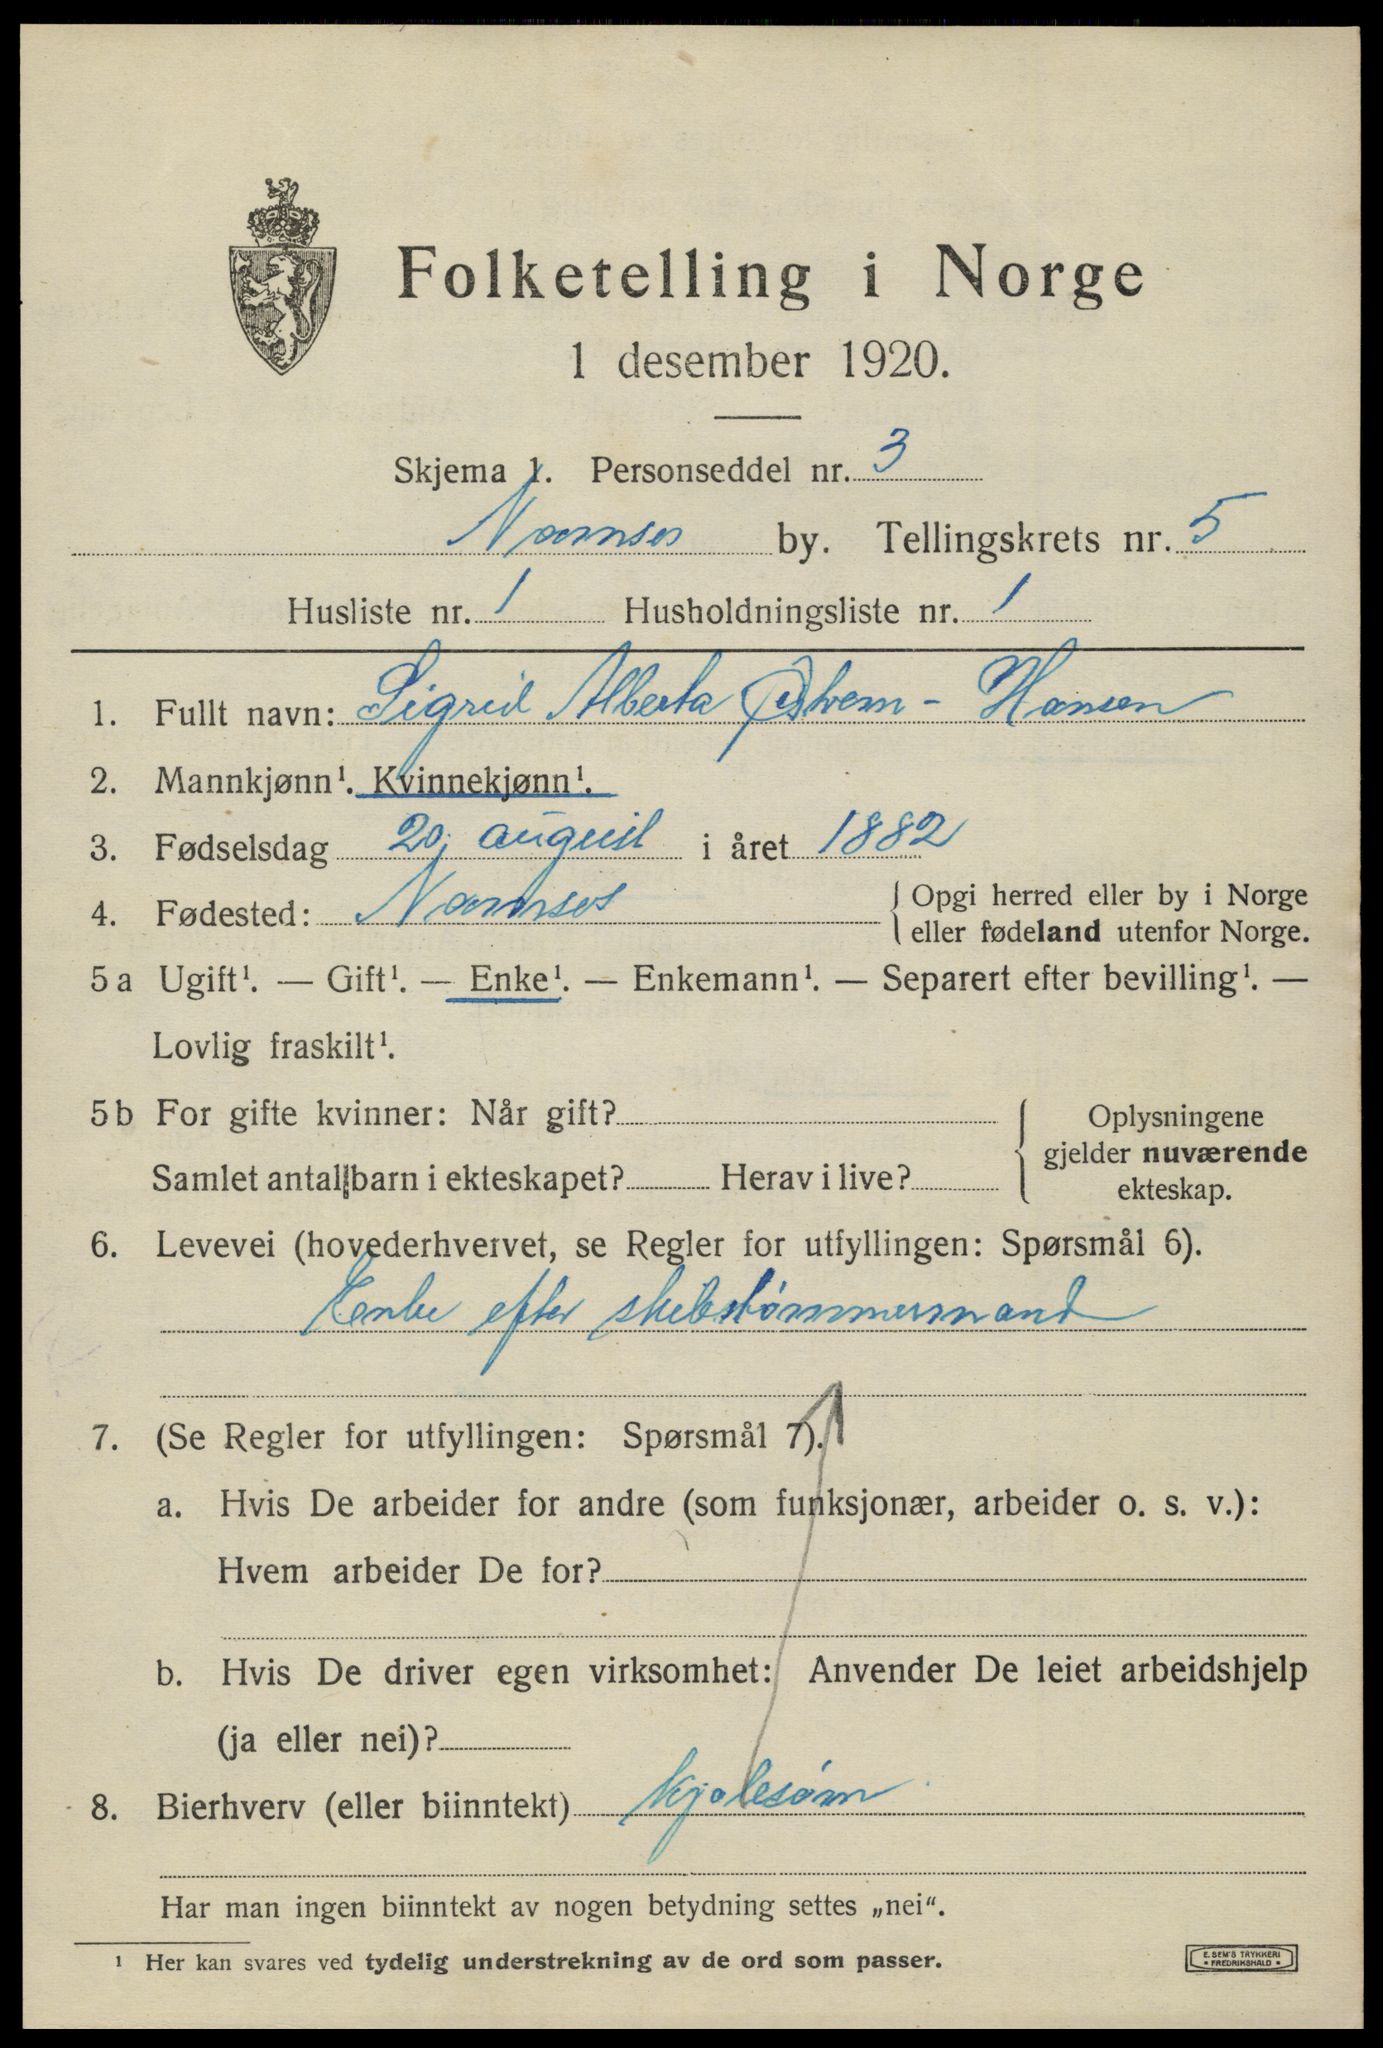 Folketelling i Norge
1 desember 1920.
Skjema 1. Personseddel nr. 3
Namsos by. Tellingskrets nr. 5
Husliste nr. 1 Husholdningsliste nr. 1
1. Fullt navn: Sigrid Alberta Østrem - Hansen
2. Mannkjønn¹. Kvinnekjønn¹.
3. Fødselsdag 20. august i året 1882
4. Fødested: Namsos
{ Opgi herred eller by i Norge
eller fødeland utenfor Norge.
5 a Ugift¹. — Gift¹. — Enke¹. — Enkemann¹. — Separert efter bevilling¹. —
Lovlig fraskilt¹.
5 b For gifte kvinner: Når gift?
Samlet antall barn i ekteskapet? Herav i live?
{ Oplysningene
gjelder nuværende
ekteskap.
6. Levevei (hovederhvervet, se Regler for utfyllingen: Spørsmål 6).
Enke efter skibstømmermand
7. (Se Regler for utfyllingen: Spørsmål 7).
a. Hvis De arbeider for andre (som funksjonær, arbeider o. s. v.):
Hvem arbeider De for?
b. Hvis De driver egen virksomhet: Anvender De leiet arbeidshjelp
(ja eller nei)?
8. Bierhverv (eller biinntekt) kjolesøm
Har man ingen biinntekt av nogen betydning settes „nei“.
¹ Her kan svares ved tydelig understrekning av de ord som passer.
E. SEM'S TRYKKERI
• FREDRIKSHALD •